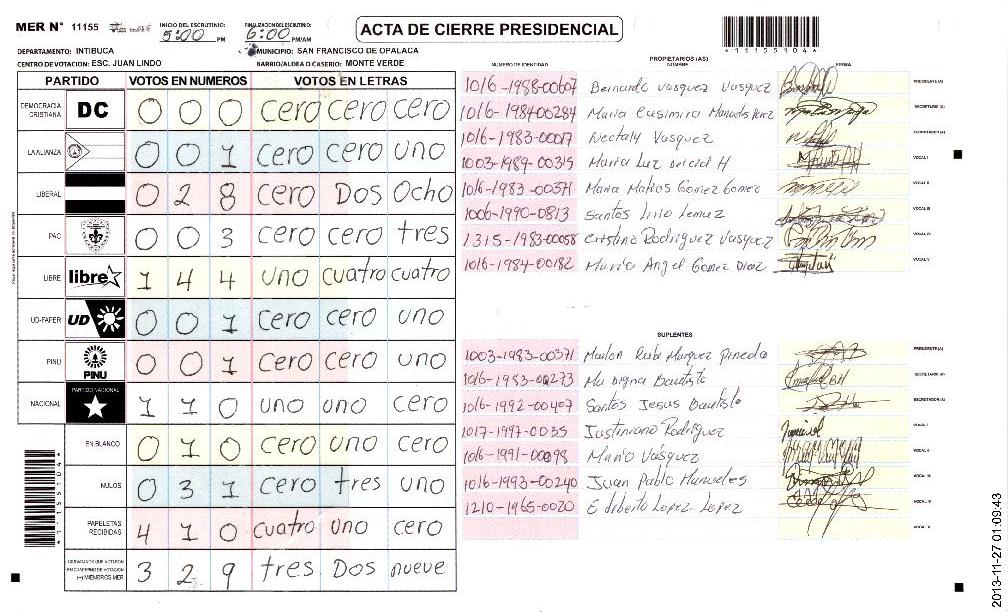 MER N° 11155 INICIO DEL ESCRUTINIO: 5:00 PM FINALIZACION DEL ESCRUTINIO: 6:00 PM/AM ACTA DE CIERRE PRESIDENCIAL *11155104*
DEPARTAMENTO: INTIBUCA MUNICIPIO: SAN FRANCISCO DE OPALACA
CENTRO DE VOTACION: ESC. JUAN LINDO BARRIO/ALDEA O CASERIO: MONTE VERDE
PARTIDO VOTOS EN NUMEROS VOTOS EN LETRAS
DEMOCRACIA CRISTIANA DC 0 0 0 cero cero cero
LA ALIANZA 0 0 1 cero cero uno
LIBERAL 0 2 8 cero Dos Ocho
PAC 0 0 3 cero cero tres
LIBRE libre 1 4 4 uno cuatro cuatro
UD-FAPER UD 0 0 1 cero cero uno
PINU PINU 0 0 1 cero cero uno
NACIONAL PARTIDO NACIONAL 1 1 0 uno uno cero
EN BLANCO 0 1 0 cero uno cero
NULOS 0 3 1 cero tres uno
PAPELETAS RECIBIDAS 4 1 0 cuatro uno cero
CIUDADANOS QUE VOTARON EN CUADERNO DE VOTACION (+) MIEMBROS MER 3 2 9 tres Dos nueve
*11155104*
PROPIETARIOS (AS)
NUMERO DE IDENTIDAD NOMBRE FIRMA
1016-1988-00607 Bernardo Vasquez Vasquez PRESIDENTE (A)
1016-1984-00284 Maria Casimira Manueles Perez SECRETARIO (A)
1016-1983-00017 Nectaly Vasquez ESCRUTADOR (A)
1003-1989-00315 Marta Luz H VOCAL I
1016-1983-00371 Maria Matias Gomez Gomez VOCAL II
1006-1990-0813 Santos Lemuz VOCAL III
1315-1983-00058 cristina Rodriguez Vasquez VOCAL IV
1016-1984-00182 Mario Angel Gomez Diaz VOCAL V
SUPLENTES
1003-1983-00371 Marlon Marquez Pineda PRESIDENTE (A)
1016-1983-00273 Ma Digna Bautista SECRETARIO (A)
1016-1992-00407 Santos Jesus Bautista ESCRUTADOR (A)
1017-1997-0035 Justiniano Rodriguez VOCAL I
1016-1991-00098 Mario Vasquez VOCAL II
1016-1993-00240 Juan Pablo Manueles VOCAL III
1210-1965-0020 Edilberto Lopez Lopez VOCAL IV
VOCAL V
2013-11-27 01:09:43